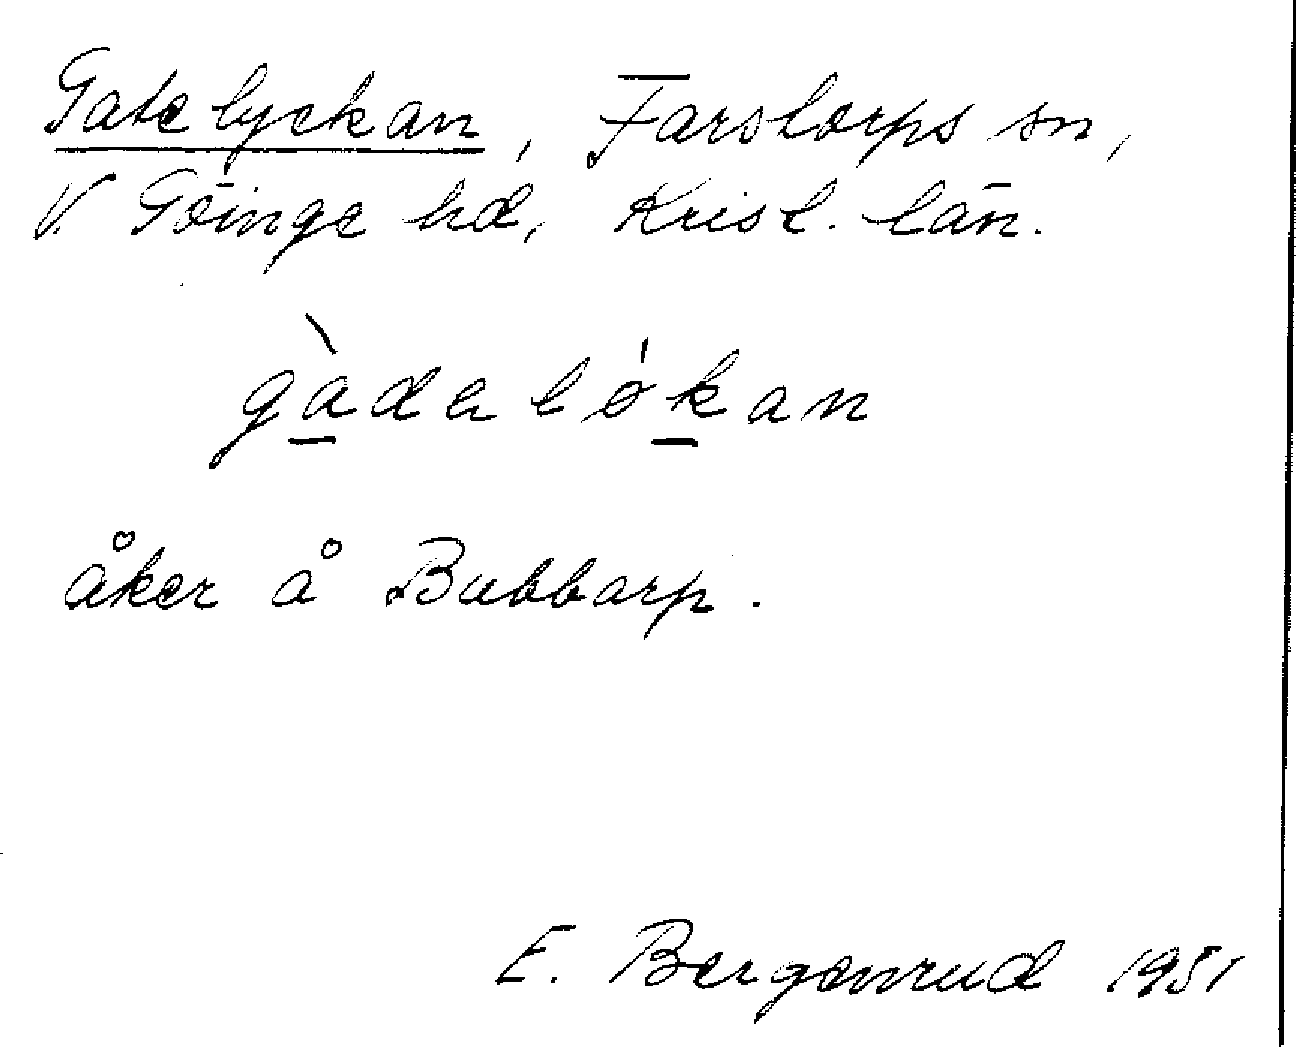 Gatelyckan, Farstorps sn,
V. Göinge hd, Krist. län.
gàdalǿkan
åker å Bubbarp.
E. Bergenrud 1951